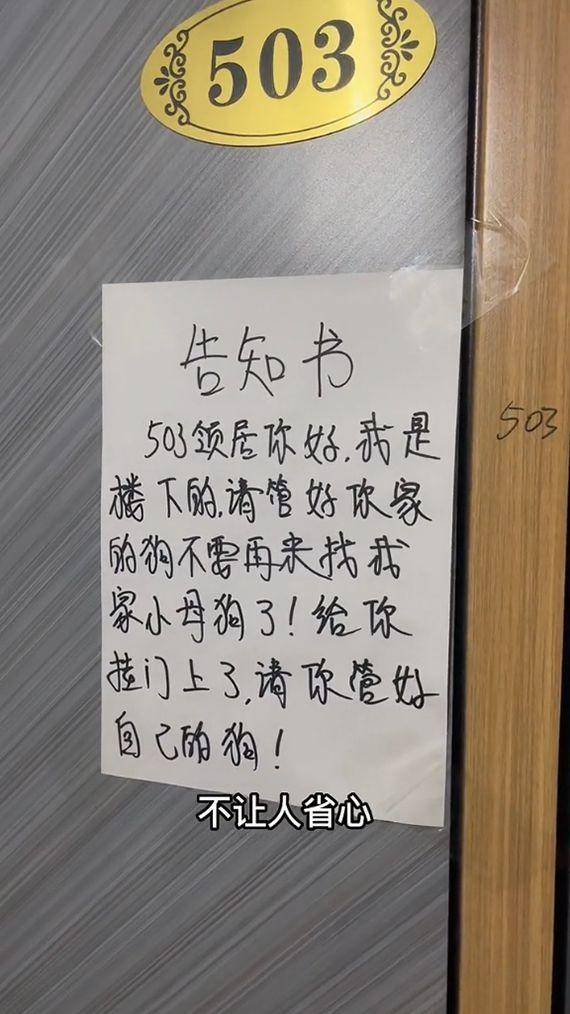 503
告知书
503领居你好,我是
楼下的,请管好你家
的狗不要再来找我
家小母狗了！给你
挂门上了,请你管好
自己的狗！
503
不让人省心